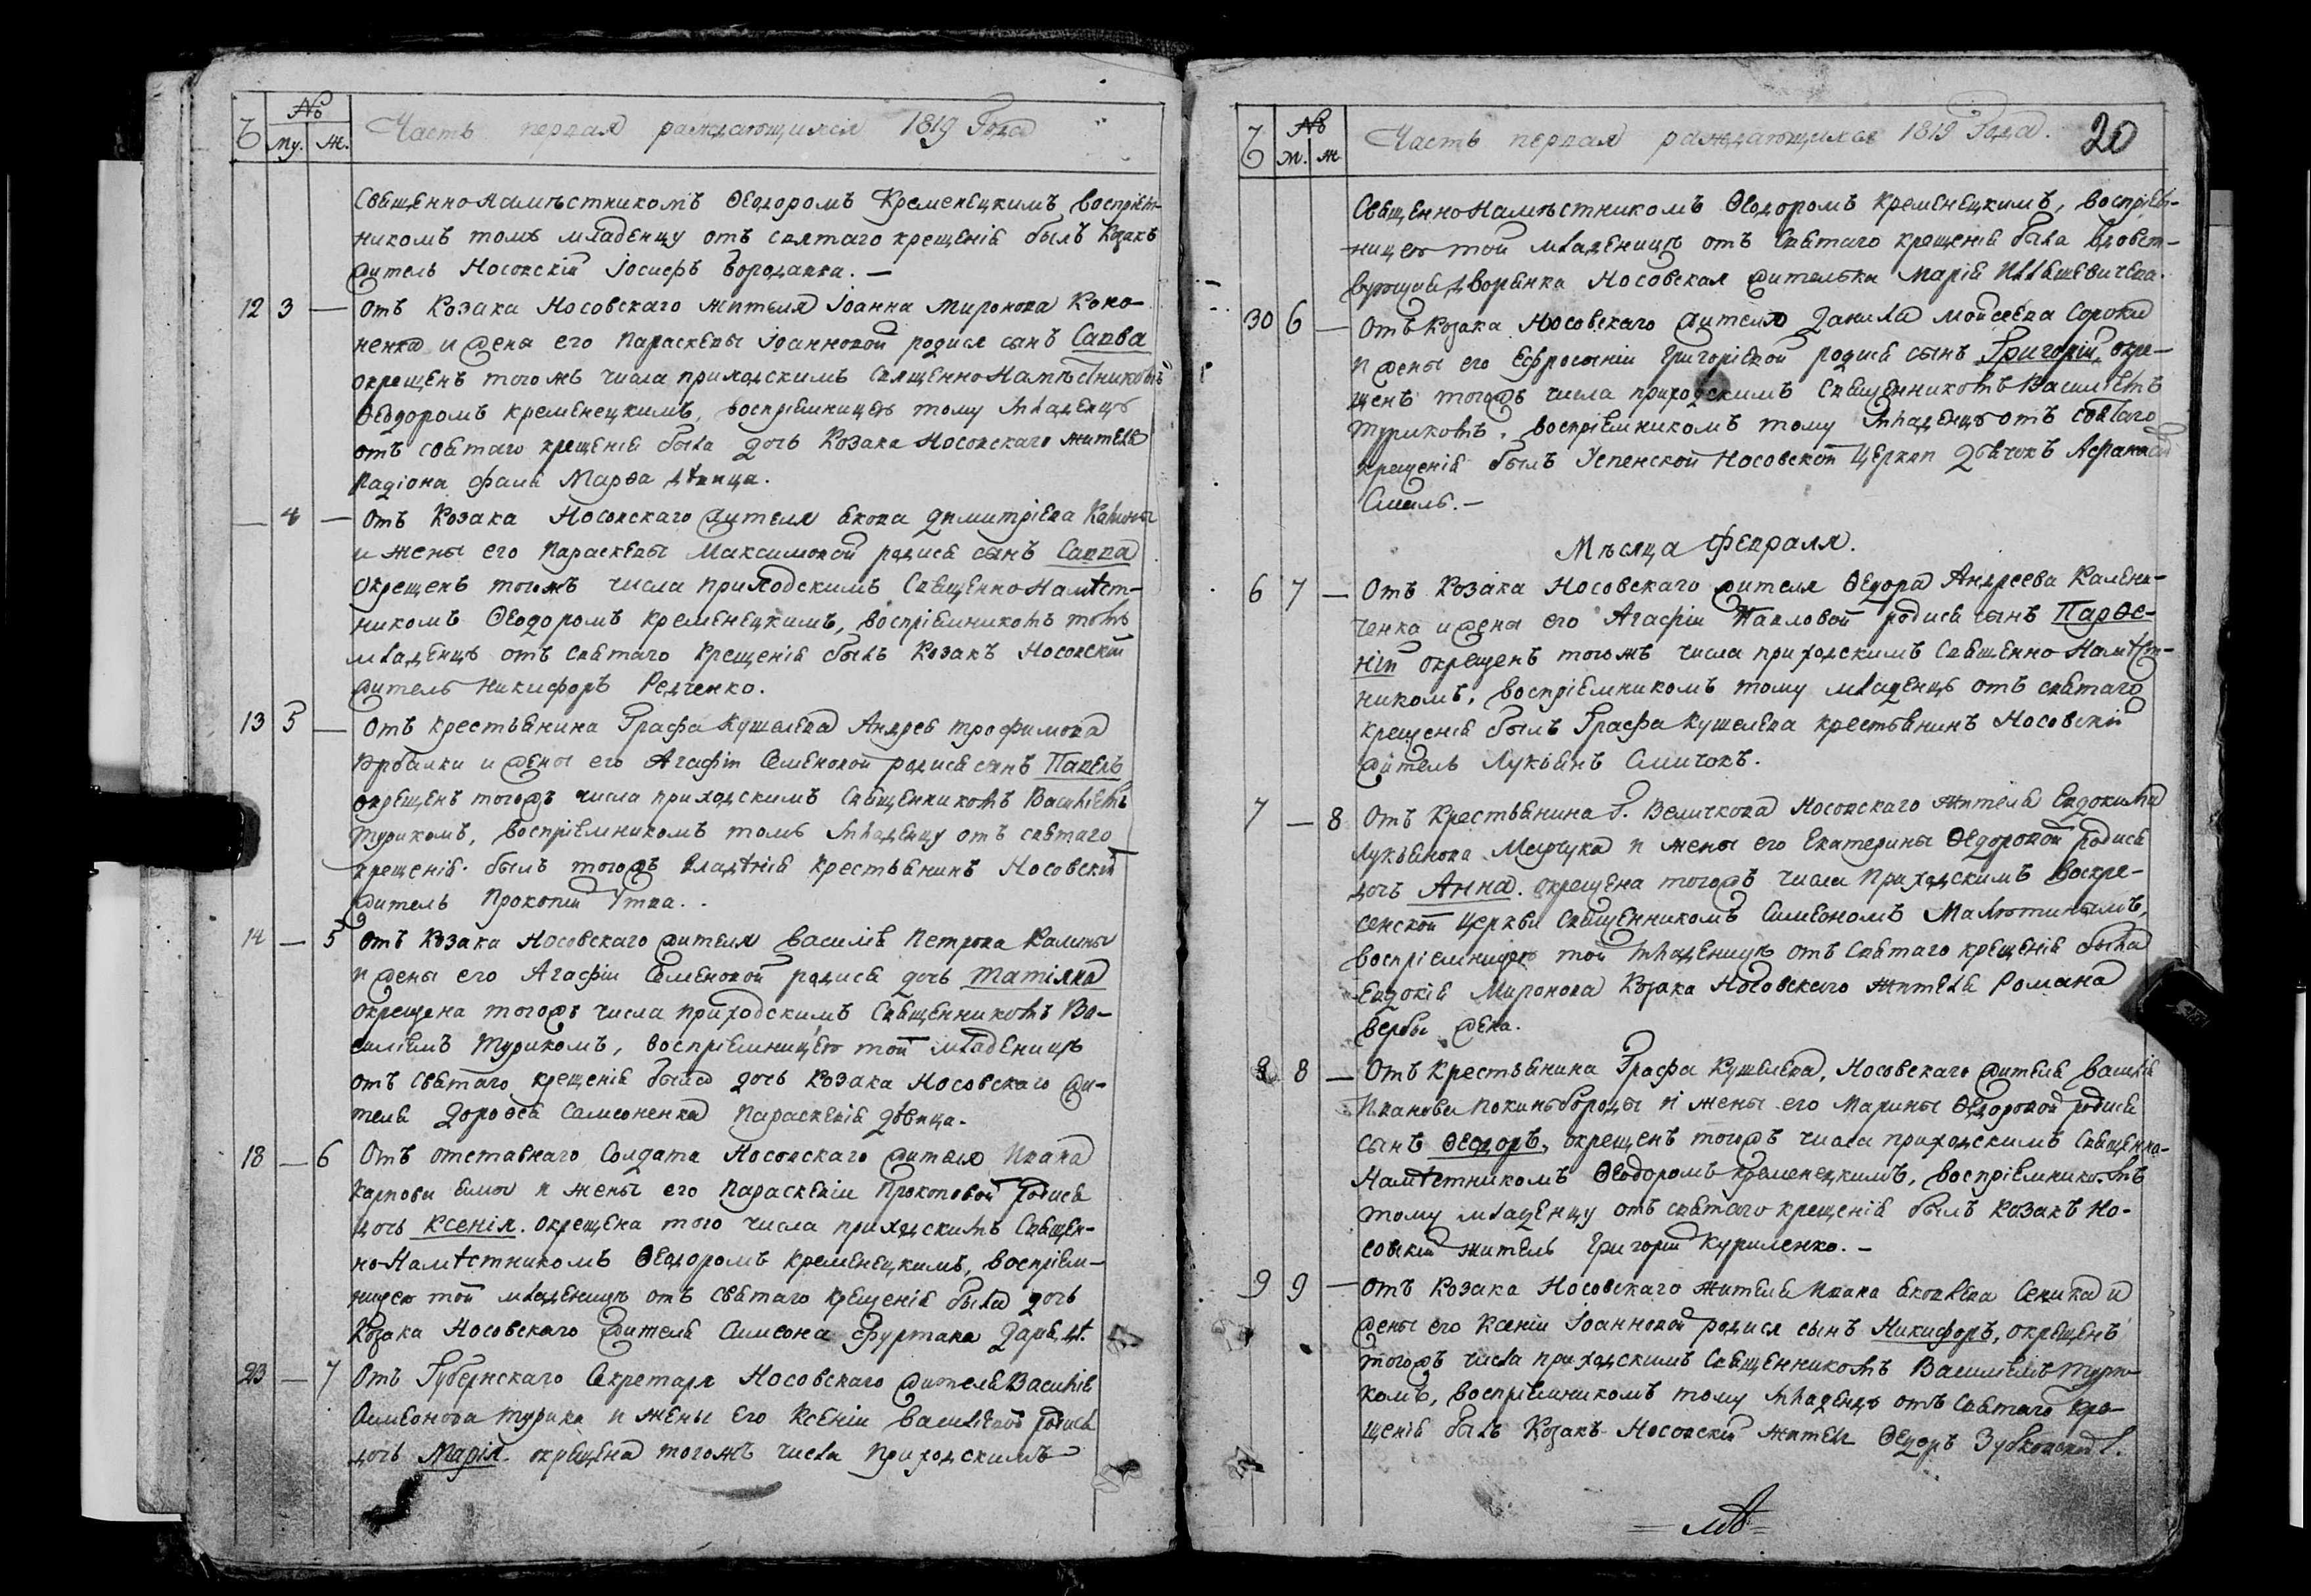 Ч № Му. Ж. Часть первая раждающихся 1819 Года
Священно Намѣстникомъ Ѳеодоромъ Кременецкимъ, воспріем-
никомъ тому младенцу отъ святаго крещенія былъ Козакъ
житель Носовскій Іосифъ Бородавка. —
12 3 — Отъ Козака Носовскаго жителя Іоанна Миронова Коно-
ненка и жены его Параскевы Іоанновой родися сынъ Савва
окрещенъ тогожъ числа приходскимъ Священно Намѣстникомъ
Ѳеодоромъ Кременецкимъ, воспріемницею тому младенцу
отъ святаго крещенія была дочь Козака Носовскаго жителя
Радіона Марѳа дѣвица.
— 4 — Отъ Козака Носовскаго жителя Якова Димитріева Калины
и жены его Параскевы Максимовой родися сынъ Савва
окрещенъ тогожъ числа приходскимъ Священно Намѣст-
никомъ Ѳеодоромъ Кременецкимъ, воспріемникомъ тому
младенцу отъ святаго крещенія былъ Козакъ Носовскій
житель Никифоръ Редченко.
13 5 — Отъ крестьянина Графа Кушелева Андрея Трофимова
и жены его Агафіи Семеновой родися сынъ Павелъ
окрещенъ тогожъ числа приходскимъ Священникомъ Василіемъ
Турикомъ, воспріемникомъ тому младенцу отъ святаго
крещенія былъ тогожъ владѣнія крестьянинъ Носовскій
житель Прокопій Утка.
14 — 5 Отъ Козака Носовскаго жителя Василія Петрова Калины
и жены его Агафіи Семеновой родися дочь Татіяна
окрещена тогожъ числа приходскимъ Священникомъ Ва-
силіемъ Турикомъ, воспріемницею той младеницѣ
отъ святаго крещенія была дочь Козака Носовскаго жи-
теля Дороѳея Самсоненка Параскевія дѣвица.
18 — 6 Отъ отставнаго Солдата Носовскаго жителя Ивана
Карпова и жены его Параскевіи Прокоповой родися
дочь Ксенія. окрещена того числа приходскимъ Священ-
но Намѣстникомъ Ѳеодоромъ Кременецкимъ, воспріем-
ницею той младеницѣ отъ святаго крещенія была дочь
Козака Носовскаго жителя Симеона Дарія дѣ.
23 — 7 Отъ Губернскаго Секретаря Носовскаго жителя Василія
Симеонова Турика и жены его Ксеніи Василіевой родися
дочь Марія. окрещена тогожъ числа приходскимъ
Ч № М. Ж Часть первая раждающихся 1819 Года. 20
Священно Намѣстникомъ Ѳеодоромъ Кременецкимъ, воспріем-
ницею той младеницѣ отъ святаго крещенія была вдовст-
вующая дворянка Носовская жителька Марія
30 6 — Отъ Козака Носовскаго жителя Данила Мойсеева Сороки
и жены его Ефросиніи Григоріевой родися сынъ Григорій, окре-
щенъ тогожъ числа приходскимъ Священникомъ Василіемъ
Турикомъ, воспріемникомъ тому младенцу отъ святаго
крещенія былъ Успенской Носовской Церкви Дьячокъ
Смаль. —
Мѣсяца Февраля.
6 7 — Отъ Козака Носовскаго жителя Ѳедора Андреева Калени-
ченка и жены его Агафіи Павловой родися сынъ Парѳе-
ній окрещенъ тогожъ числа приходскимъ Священно Намѣст-
никомъ, воспріемникомъ тому младенцу отъ святаго
крещенія былъ Графа Кушелева крестьянинъ Носовскій
житель Лукіянъ Смичокъ.
7 — 8 Отъ Крестьянина Г. Величкова Носовскаго жителя Евдокима
Лукьянова и жены его Екатерины Ѳедоровой родися
дочь Анна. окрещена тогожъ числа приходскимъ Воскре-
сенской Церкви Священникомъ Симеономъ Малютинымъ,
воспріемницею той младеницѣ отъ святаго крещенія была
Евдокія Миронова Козака Носовскаго жителя Романа
Вербы жена.
8 8 — Отъ Крестьянина Графа Кушелева, Носовскаго жителя Василія
Иванова Покиньбороды и жены его Марины Ѳедоровой родися
сынъ Ѳеодоръ, окрещенъ тогожъ числа приходскимъ Священно-
Намѣстникомъ Ѳеодоромъ Кременецкимъ, воспріемникомъ
тому младенцу отъ святаго крещенія былъ Козакъ Но-
совскій житель Григорій Куриленко. —
9 9 — Отъ Козака Носовскаго жителя Ивана Яковлева и
жены его Ксеніи Іоанновой родися сынъ Никифоръ, окрещенъ
тогожъ числа приходскимъ Священникомъ Василіемъ Тури-
комъ, воспріемникомъ тому младенцу отъ святаго кре-
щенія былъ Козакъ Носовскій житель Ѳедоръ